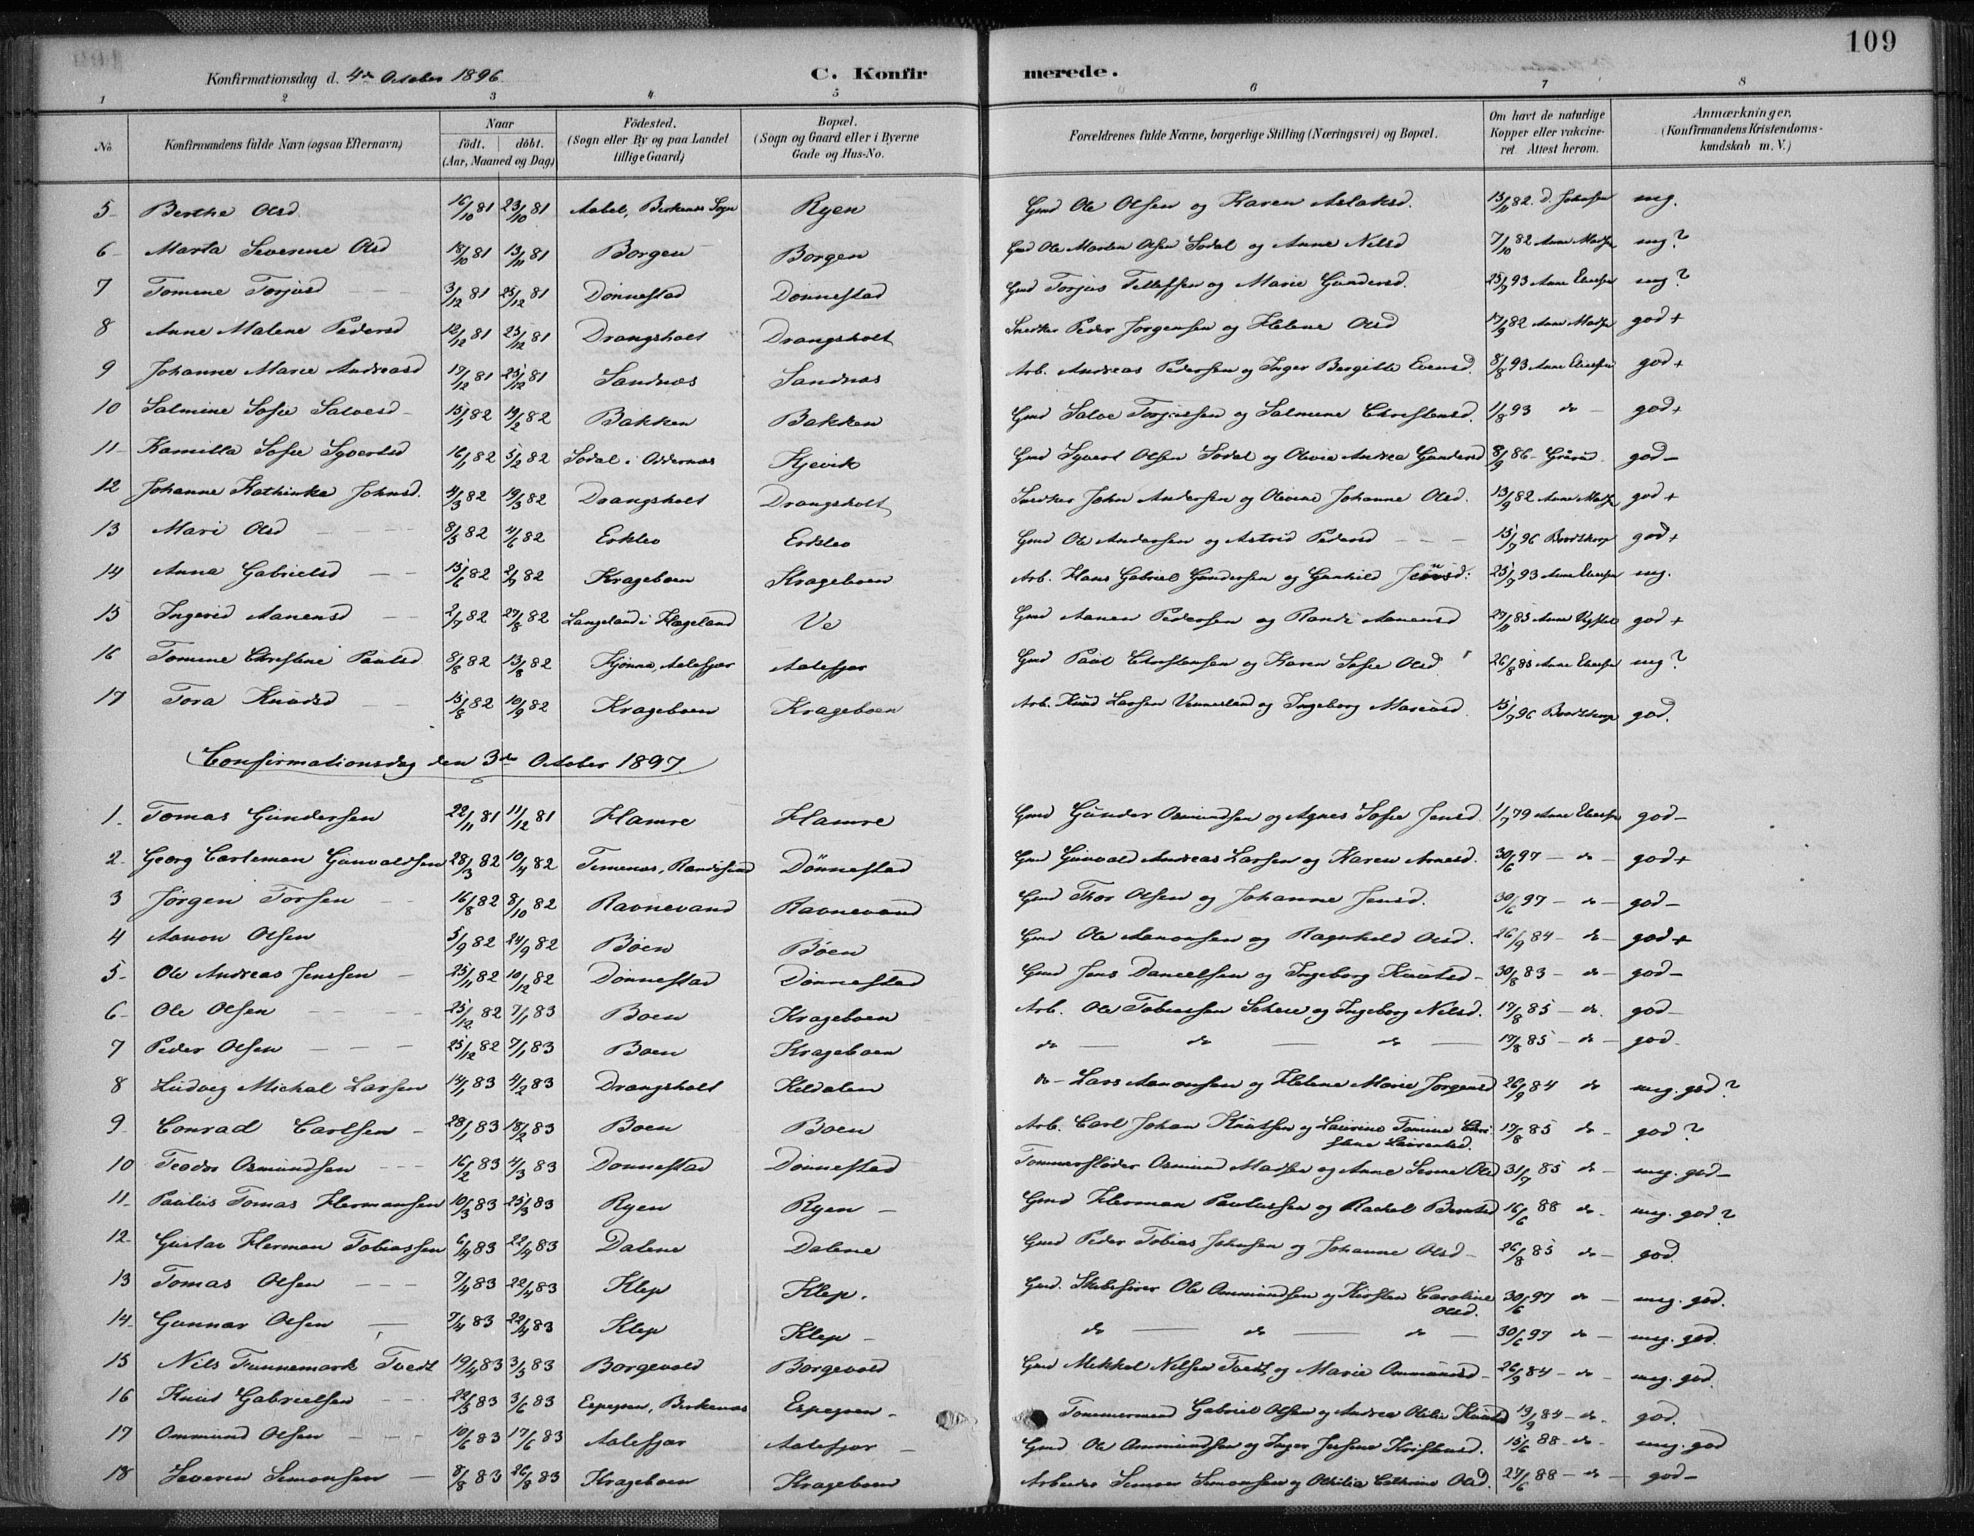 109
Konfirmationsdag d. 4de October 1896.
C. Konfirmerede.
1 2 3 4 5 6 7 8
No
Konfirmandens fulde Navn (ogsaa Efternavn)
Naar født. døbt. (Aar, Maaned og Dag)
Födested. (Sogn eller By og paa Landet tillige Gaard)
Bopæl. (Sogn og Gaard eller i Byerne Gade og Hus-No.
Forældrenes fulde Navne, borgerlige Stilling (Næringsvei) og Bopæl.
Om havt de naturlige Kopper eller vakcineret Attest herom.
Anmærkninger. (Konfirmandens Kristendomskundskab m. V.)
5 Berthe Olsd. 16/10 81 23/10 81 Aabel, Birkenes Sogn Ryen Gmd Ole Olsen og Karen Aslaksd. 13/11 82. d. Johnsen mg.
6 Marta Severine Olsd 18/10 81 13/11 81 Borgen Borgen Gmd Ole Morten Olsen Sodal og Anne Nilsd 7/10 82 Anne Madsen mg?
7 Tomine Torjusd 3/12 81 25/12 81 Dønnestad Dønnestad Gmd Torjus Tellefsen og Marie Gundersd. 25/7 93 Anne Eliesen mg?
8 Anne Malene Pedersd 12/12 81 25/12 81 Drangsholt Drangsholt Snedker Peder Jørgensen og Helene Olsd 17/9 82 Anne Madsen god +
9 Johanne Marie Andreasd 17/12 81 25/12 81 Sandnæs Sandnæs Arb. Andreas Pedersen og Inger Bergitte Evensd. 8/8 93 Anne Eliesen god +
10 Salmine Sofie Salvesd 15/1 82 19/2 82 Bakken Bakken Gmd Salve Torjusen og Salmine Christensd. 1/8 93 do god +
11 Kamilla Sofie Syvertsd 16/1 82 5/2 82 Sødal i Oddernæs Kjevik Gmd Syvert Olsen Sødal og Olivia Andrea Gundersd 8/9 86 god -
12 Johanne Kathinka Johnsd. 4/3 82 19/3 82 Drangsholt Drangsholt Snedker John Andersen og Olivine Johanne Olsd. 13/9 82 Anne Madsen god +
13 Mari Olsd 8/5 82 4/6 82 Erklev Erklev Gmd Ole Andersen og Astrid Pedersd 15/7 96 god +
14 Anna Gabrielsd 15/6 82 2/7 82 Krageboen Krageboen Arb. Hans Gabriel Gundersen og Gunhild Jensd. 25/7 93 Anne Eliesen mg.
15 Ingerid Aanensd 2/7 82 27/8 82 Langeland i Hægeland Ve Gmd Aanen Pedersen og Randi Aanensd 27/11 85 Anne god +
16 Tomine Christine Paulsd 8/8 82 13/8 82 Kjønna, Aalefjær Aalefjær Gmd Paul Christensen og Karen Sofie Olsd 26/8 85 Anne Eliesen mg?
17 Tora Knudsd 15/8 82 10/9 82 Krageboen Krageboen Arb. Knud Larsen Vennesland og Ingeborg Mariusd. 15/7 96 god.
Confirmationsdag den 3de October 1897.
1. Tomas Gundersen 22/11 81 11/12 81 Hamre Hamre Gmd Gunder Osmundsen og Agnes Sofie Jensd. 1/7 79 Anne Eliesen god -
2. Georg Carleman Gunvaldsen 28/3 82 10/4 82 Timenes, Randøsund Dønnestad Gmd Gunvald Andreas Larsen og Karen Arnesd. 30/6 97 - do - god +
3 Jørgen Torsen 16/8 82 8/10 82 Ravnevand Ravnevand Gmd Thor Olsen og Johanne Jensd. 30/6 97 - do - god -
4 Aanon Olsen 5/9 82 24/9 82 Bøen Bøen Gmd Ole Aanonsen og Ragnhild Olsd. 26/9 84 - do - god +
5 Ole Andreas Jenssen 25/11 82 10/12 82 Dønnestad Dønnestad Gmd Jens Danielsen og Ingeborg Knutsd 30/8 83 - do - god -
6 Ole Olsen 25/12 82 7/1 83 Boen Krageboen Arb. Ole Tobiassen Scheie og Ingeborg Nilsd. 17/8 85 - do. god -
7 Peder Olsen 25/12 82 7/1 83 Boen Krageboen do do do 17/8 85 - do - god
8 Ludvig Mickal Larsen 14/1 83 4/2 83 Drangsholt Kildalen do Lars Aanonsen og Helene Marie Jørgensd 26/9 84 do mg. god?
9 Conrad Carlsen 28/1 83 18/2 83 Boen Boen Arb. Carl Johan Knutsen og Laurine Tomine Christine Laurentsd. 17/8 85 do - god?
10 Teodor Osmundsen 16/2 83 4/3 83 Dønnestad Dønnestad Tømmerfløder Osmund Madsen og Anne Serine Olsd 31/7 85 do - mg. god -
11 Paulus Tomas Hermansen 10/3 83 25/3 83 Ryen Ryen Gmd Herman Paulussen og Rachel Berntsd 16/6 88 do - mg. god?
12 Gustav Herman Tobiassen 6/4 83 22/4 83 Dalene Dalene Gmd Peder Tobias Johnsen og Johanne Olsd 26/8 85 do - god.
13 Tomas Olsen 7/4 83 22/4 83 Klep Klep. Gmd. Skibsfører Ole Ommundsen og Kirsten Caroline Olsd. 30/6 97 do - mg. god.
14 Gunnar Olsen 7/4 83 22/4 83 Klep Klep do do do 30/6 97 do - mg. god.
15 Nils Funnemark Tvedt 19/4 83 3/5 83 Borgevold Borgevold Gmd Mikkel Nilsen Tvedt og Marie Ommundsd 26/9 84 - do - mg. god.
16 Knut Gabrielsen 22/5 83 3/6 83 Espegren, Birkenes Espegren Tømmermand Gabriel Olsen og Andrea Otilie Knutsd 19/9 84 - do. god.
17 Ommund Olsen 10/6 83 17/6 83 Aalefjær Aalefjær Gmd Ole Ommundsen og Inger Jesine Kristensd. 15/6 88 - do - mg. god
18 Severin Simonsen 8/8 83 26/8 83 Krageboen Krageboen Arbeider Simon Simonsen og Othilia Cathrine Olsd. 27/6 88 - do - god -